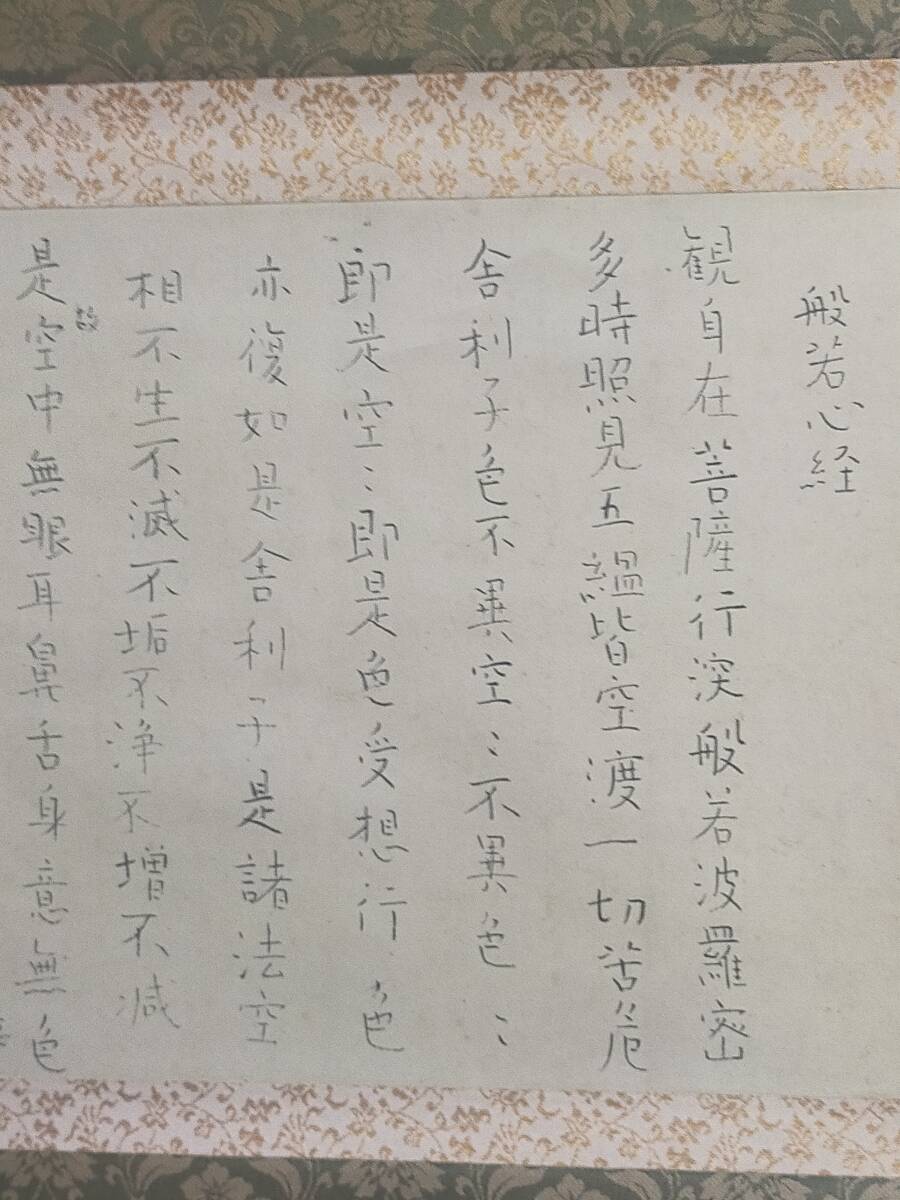 般若心経
観自在菩薩行深般若波羅密
多時照見五縕皆空渡一切苦危
舎利子色不異空〻不異色〻
即是空〻即是色受想行色
亦復如是舎利子是諸法空
相不生不滅不垢不浄不増不減
是故空中無眼耳鼻舌身意無色